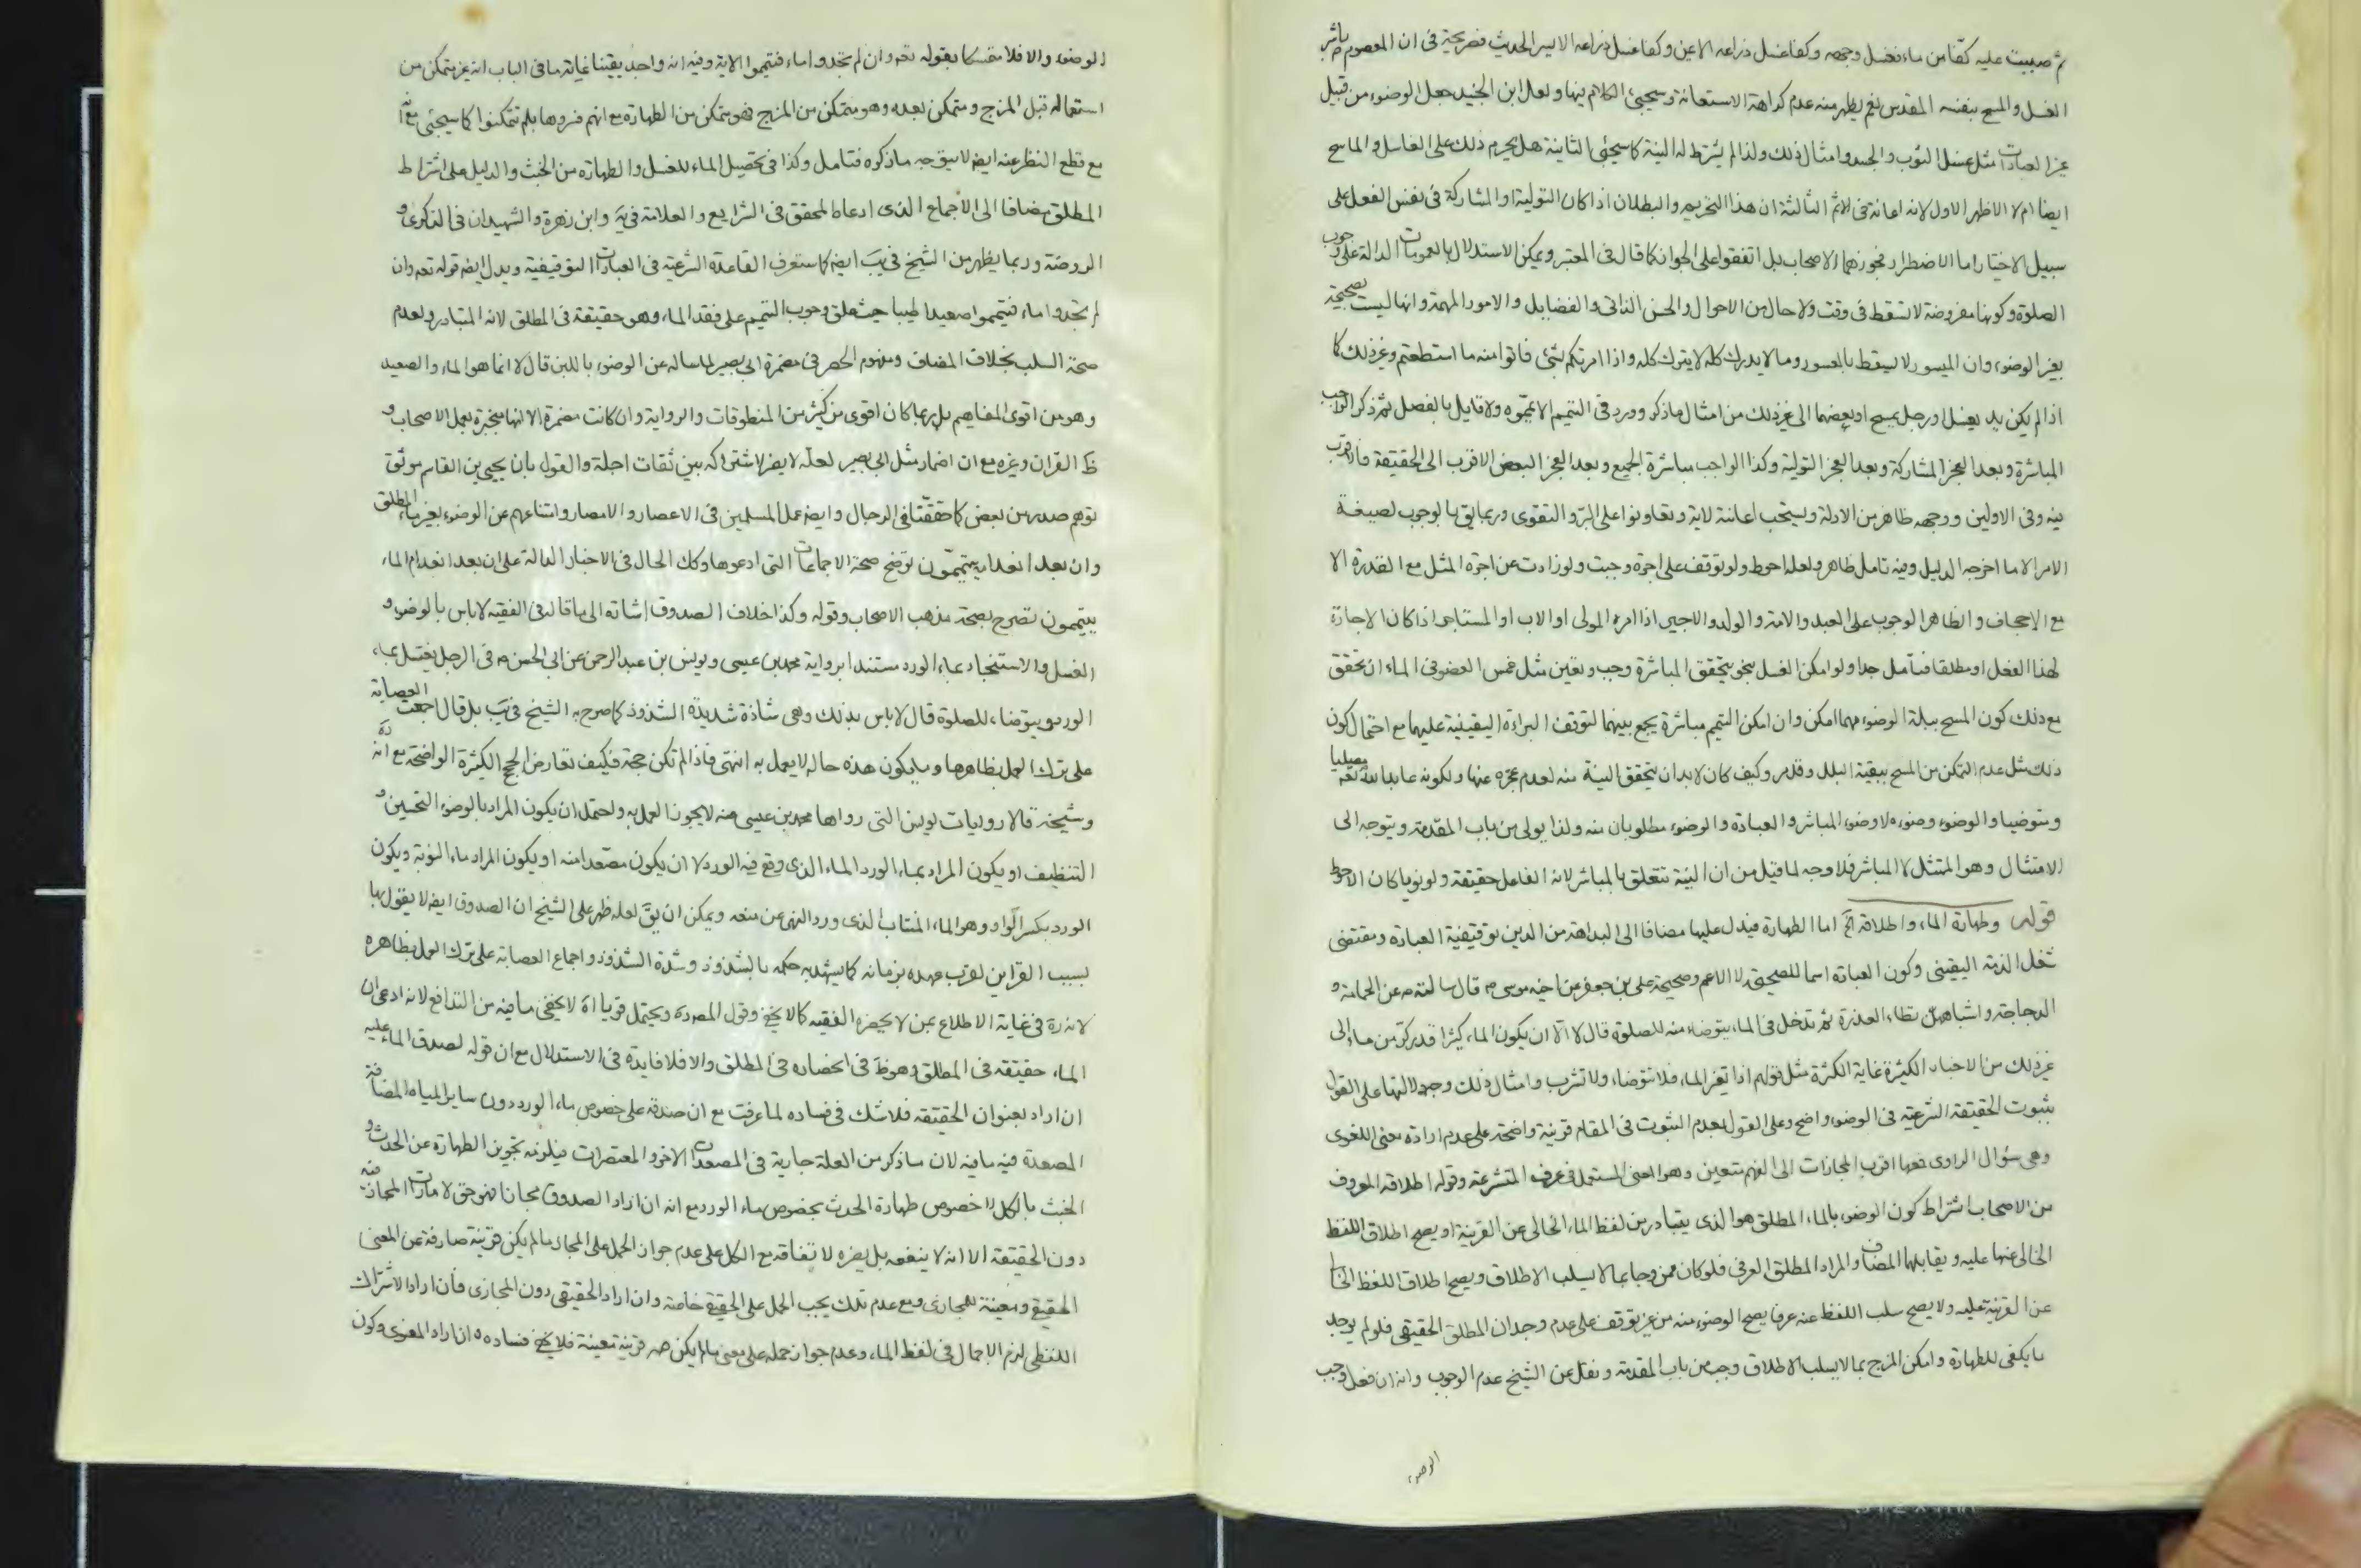 ثم صببت عليه كفا من ماء فغسل وجهه وكفا غسل ذراعه الايمن وكفا غسل ذراعه الايسر الحديث فصريحة في ان المعصوم م باشر
الغسل والمسح بنفسه المقدس نعم يظهر منه عدم كراهة الاستعانة وسيجئ الكلام فيها ولعل ابن الجنيد جعل الوضوء من قبيل
غير العبادات مثل غسل الثوب والجسد وامثال ذلك ولذا لم يشترط له النية كما سيجئ الثانية هل يحرم ذلك على الغاسل والماسح
ايضا ام لا الاظهر الاول لانه اعانة في الاثم الثالثة ان هذا التحريم والبطلان اذا كان التولية او المشاركة في نفس الفعل على
سبيل الاختيار اما الاضطرار فجوزهما الاصحاب بل اتفقوا على الجواز كما قال في المعتبر ويمكن الاستدلال بالعمومات الدالة على وجوب
الصلوة وكونها مفروضة لا تسقط في وقت ولا حال من الاحوال والحسن الذاتي والفضايل والامور المهمة وانها ليست بصحيحة
بغير الوضوء وان الميسور لا يسقط بالمعسور وما لا يدرك كله لا يترك كله واذا امرتكم بشئ فاتوا منه ما استطعتم وغير ذلك كما
اذا لم يكن يد يغسل او رجل يمسح او بعضهما الى غير ذلك من امثال ما ذكر وورد في التيمم الا يمموه ولا قايل بالفصل ثم ذكر الواجب
المباشرة وبعد العجز المشاركة وبعد العجز التولية وكذا الواجب مباشرة الجميع وبعد العجز البعض الاقرب الى الحقيقة فالاقرب
فيه وفي الاولين ووجهه ظاهر من الادلة ويستحب اعانته لاية وتعاونوا على البر والتقوى وربما يق بالوجوب لصيغة
الامر الا ما اخرجه الدليل وفيه تامل ظاهر ولعله احوط ولو توقف على اجرة وجبت ولو زادت عن اجرة المثل مع القدرة الا
مع الاجحاف والظاهر الوجوب على العبد والامة والولد والاجير اذا امره المولى او الاب او المستاجر اذا كان الاجارة
لهذا الفعل او مطلقا فتامل جدا ولو امكن الغسل بنحو يتحقق المباشرة وجب وتعين مثل غمس العضو في الماء ان تحقق
مع ذلك كون المسح ببلة الوضوء مهما امكن وان امكن التيمم مباشرة يجمع بينهما لتوقف البراءة اليقينية عليهما مع احتمال كون
ذلك مثل عدم التمكن من المسح ببقية البلل وقد مر وكيف كان لا بد ان يتحقق النية منه لعدم عجزه عنها ولكونه عابدا لله تعه مصليا
ومتوضيا والوضوء وضوءه لا وضوء المباشر والعبادة والوضوء مطلوبان منه ولذا يولى من باب المقدمة ويتوجه الى
الامتثال وهو الممتثل لا المباشر فلا وجه لما قيل من ان النية تتعلق بالمباشر لانه الفاعل حقيقة ولو نويا كان الاحوط
قوله وطهارة الماء واطلاقه الخ اما الطهارة فيدل عليها مضافا الى البداهة من الدين توقيفية العبادة ومقتضى
شغل الذمة اليقيني وكون العبادة اسما للصحيحة لا الاعم وصحيحة على بن جعفر عن اخيه موسى م قال سالته م عن الحمامة و
الدجاجة واشباههن تطاء العذرة ثم تدخل في الماء يتوضاء منه للصلوة قال لا الا ان يكون الماء كثيرا قدر كر من ماء الى
غير ذلك من الاخبار الكثيرة غاية الكثرة مثل قولهم اذا تغير الماء فلا تتوضاء ولا تشرب وامثال ذلك وجه دلالتها على القول
بثبوت الحقيقة الشرعية في الوضوء واضح وعلى القول بعدم الثبوت في المقام قرينة واضحة على عدم ارادة معنى اللغوى
وهي سؤال الراوى فعها اقرب المجازات الى الفهم متعين وهو المعنى المستعمل في عرف المتشرعة وقوله اطلاقه المعروف
من الاصحاب اشتراط كون الوضوء بالماء المطلق هو الذى يتبادر من لفظ الماء الخالى عن القرينة او يصح اطلاق اللفظ
الخالى عنها عليه ويقابلها المضاف والمراد المطلق العرفي فلو كان ممزوجا بما لا يسلب الاطلاق ويصح اطلاق اللفظ الخالى
عن القرينة عليه ولا يصح سلب اللفظ عنه عرفا يصح الوضوء منه من غير توقف على عدم وجدان المطلق الحقيقي فلو لم يوجد
ما يكفى للطهارة وامكن المزج بما لا يسلب الاطلاق وجب من باب المقدمة ونقل عن الشيخ عدم الوجوب وانه ان فعل وجب
الوضوء
الوضوء والا فلا متمسكا بقوله تعه وان لم تجدوا ماء فتيمموا الاية وفيه انه واجد يقينا غاية ما في الباب انه غير متمكن من
استعماله قبل المزج ومتمكن بعده وهو متمكن من المزج فهو متمكن من الطهارة مع انهم فسروها بلم تتمكنوا كما سيجئ مع انه
مع قطع النظر عنه ايضا لا يتوجه ما ذكره فتامل وكذا في تحصيل الماء للغسل والطهارة من الخبث والدليل على اشتراط
المطلق مضافا الى الاجماع الذى ادعاه المحقق في الشرايع والعلامة في ية وابن زهرة والشهيدان في الذكرى و
الروضة وربما يظهر من الشيخ في يب ايضا كما ستعرف القاعدة الشرعية في العبادات التوقيفية ويدل ايضا قوله تعه وان
لم تجدوا ماء فتيمموا صعيدا طيبا حيث علق وجوب التيمم على فقد الماء وهو حقيقة في المطلق لانه المتبادر ولعدم
صحة السلب بخلاف المضاف ومفهوم الحصر في مضمرة ابي بصير لما ساله عن الوضوء باللبن قال لا انما هو الماء والصعيد
وهو من اقوى المفاهيم بل ربما كان اقوى من كثير من المنطوقات والرواية وان كانت مضمرة الا انها منجبرة بعمل الاصحاب و
ظ القران وغيره مع ان اضمار مثل ابي بصير لعله لا يضر لاشتراكه بين ثقات اجلة والقول بان يحيى بن القاسم موثق
توهم صدر من بعض كما حققنا في الرجال وايضا عمل المسلمين في الاعصار والامصار وامتناعهم عن الوضوء بغير ماء المطلق
وان بعد انعدامه يتيممون توضح صحة الاجماعات التى ادعوها وكك الحال في الاخبار الدالة على ان بعد انعدام الماء
يتيممون تصرح بصحة مذهب الاصحاب وقوله وكذا خلاف الصدوق اشارة الى ما قال في الفقيه لا باس بالوضوء و
الغسل والاستنجاء بماء الورد مستندا برواية محمد بن عيسى ويونس بن عبد الرحمن عن ابي الحسن م في الرجل يغتسل بماء
الورد ويتوضاء للصلوة قال لا باس بذلك وهى شاذة شديدة الشذوذ كما صرح به الشيخ في يب بل قال اجمعت العصابة
على ترك العمل بظاهرها وما يكون هذه حاله لا يعمل به انتهى فاذا لم تكن حجة فكيف تعارض الحجج الكثيرة الواضحة مع انه ره
وشيخه قالا روايات يونس التى رواها محمد بن عيسى عنه لا يجوز العمل به ولحتمل ان يكون المراد بالوضوء التحسين و
التنظيف او يكون المراد بماء الورد الماء الذى وقع فيه الورد لا ان يكون مصعدا منه او يكون المراد ماء النوبة ويكون
الورد بكسر الواو وهو الماء المنتاب الذى ورد النهى عن منعه ويمكن ان يق لعله ظهر على الشيخ ان الصدوق ايضا لا يقول بها
بسبب القراين لقرب عهده بزمانه كما يشهد به حكمه بالشذوذ وشدة الشذوذ واجماع العصابة على ترك العمل بظاهره
لانه ره في غاية الاطلاع بمن لا يحضره الفقيه كما لا يخفى وقول المص ره ويحتمل قويا اه لا يخفى ما فيه من التدافع لانه ادعى ان
الماء حقيقته في المطلق وهو ظ في انحصاره في المطلق والا فلا فايدة في الاستدلال مع ان قوله لصدق الماء عليه
ان اراد بعنوان الحقيقة فلا شك في فساده لما عرفت مع ان صدقه على خصوص ماء الورد دون ساير المياه المضافة
المصعدة فيه ما فيه لان ما ذكر من العلة جارية في المصعدات الاخر والمعتصرات فيلزمه تجويز الطهارة عن الحدث و
الخبث بالكل لا خصوص طهارة الحدث بخصوص ماء الورد مع انه ان اراد الصدوق مجازا فهو حق لامارات المجاز فيه
دون الحقيقة الا انه لا ينفعه بل يضره لاتفاقه مع الكل على عدم جواز الحمل على المجاز ما لم يكن قرينة صارفة عن المعنى
الحقيقي ومعينة للمجازى ومع عدم تلك يجب الحمل على الحقيقي خاصة وان اراد الحقيقي دون المجازى فان اراد الاشتراك
اللفظى لزم الاجمال في لفظ الماء وعدم جواز حمله على معنى ما لم يكن قرينة معينة فلا يخفى فساده ان اراد المعنوى وكون